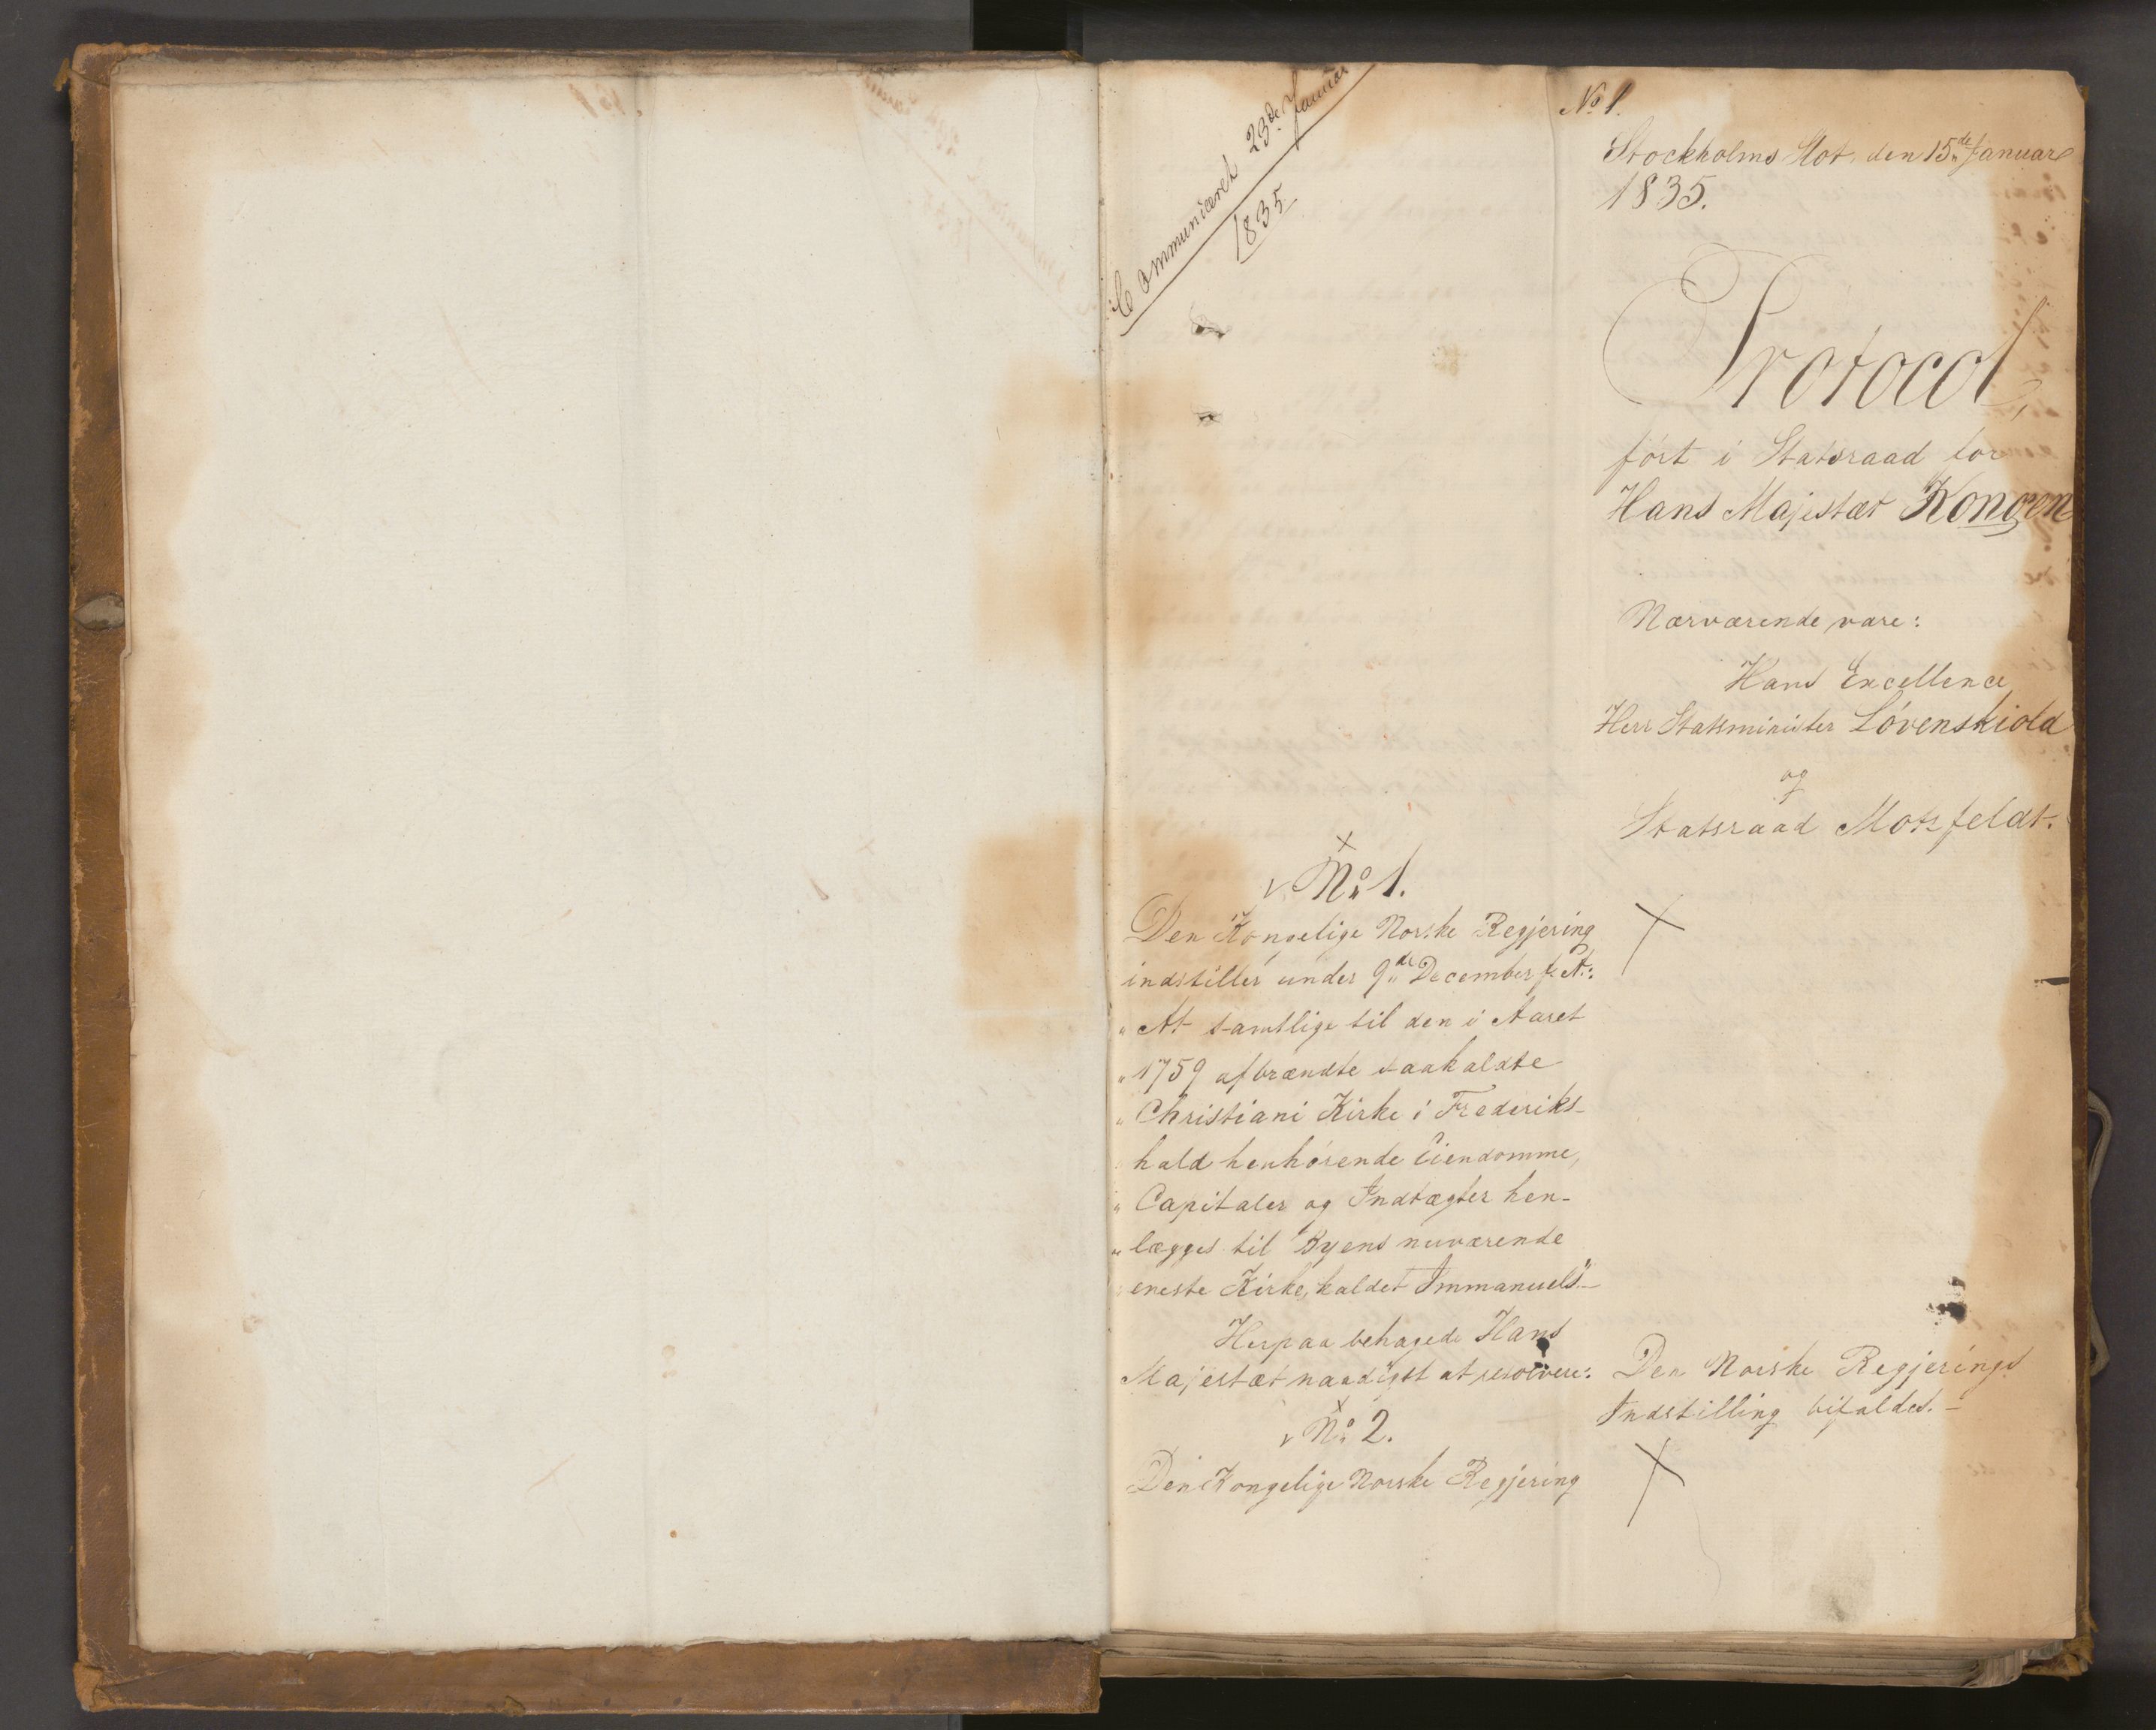 Communiceret 23de Januar
1835
No 1.
Stockholms Slot, den 15de Januar
1835.
Protocol,
ført i Statsraad for
Hans Majestæt Kongen
Nærværende vare:
Hans Excellence
Herr Statsminister Løvenskiold
og
Statsraad Motzfeldt.
No 1.
Den Kongelige Norske Regjering
indstiller under 9de December f. A.:
" At samtlige til den i Aaret
" 1759 afbrændte saakaldte
" Christiani Kirke i Frederiks-
hald henhørende Eiendomme,
" Capitaler og Indtægter hen-
" lægges til Byens nuværende
" eneste Kirke, kaldet Immanuels".-
Herpaa behagede Hans
Majestæt naadigst at resolvere:
Den Norske Regjerings
Indstilling bifaldes.-
No 2.
Den Kongelige Norske Regjering